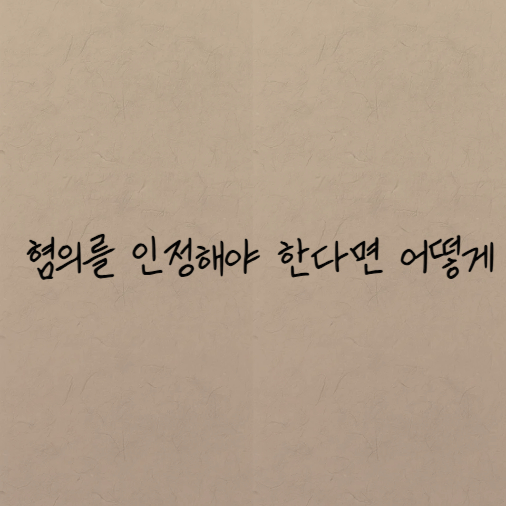 혐의를 인정해야 한다면 어떻게